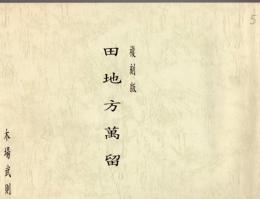 復刻版
田地方萬留
木場武則
5